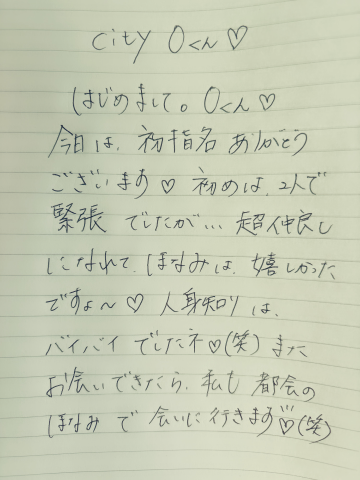 city Oくん♡
はじめまして。Oくん♡
今日は、初指名 ありがとう
ございます♡ 初めは、2人で
緊張 でしたが… 超仲良し
になれて、ほなみは、嬉しかった
ですょ～♡ 人見知り は、
バイバイ でしたネ♡(笑) また
お会いできたら、私も 都会の
ほなみ で 会いに行きます♡(笑)